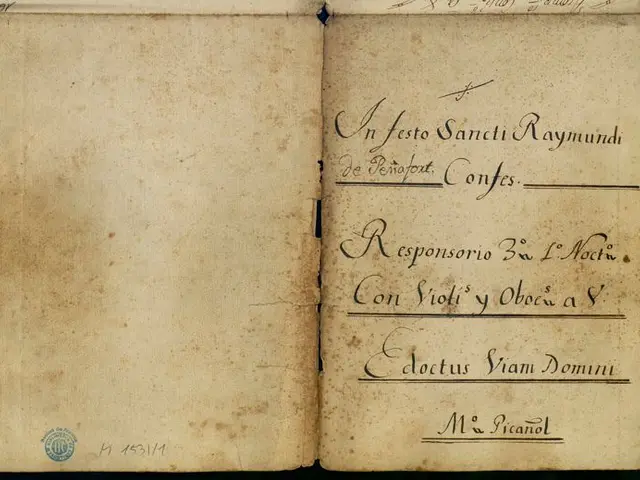 M 1531/1
In festo Sancti Raymundi
de Peñafort. Confes.
Responsorio 3.º 1.º Noctº
Con Violˢ y Oboeˢ a V.
Edoctus Viam Domini
Mº Picañol